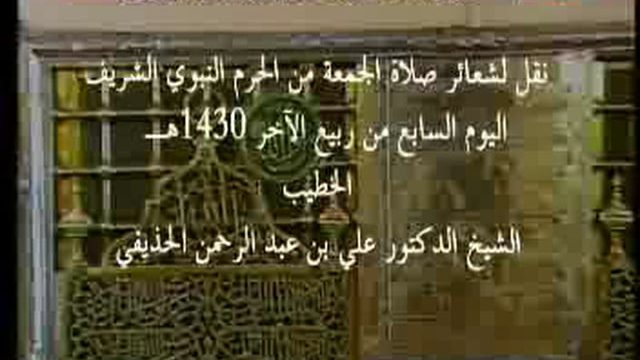 نقل لشعائر صلاة الجمعة من الحرم النبوي الشريف
اليوم السابع من ربيع الآخر 1430هـ
الخطيب
الشيخ الدكتور علي بن عبد الرحمن الحذيفي